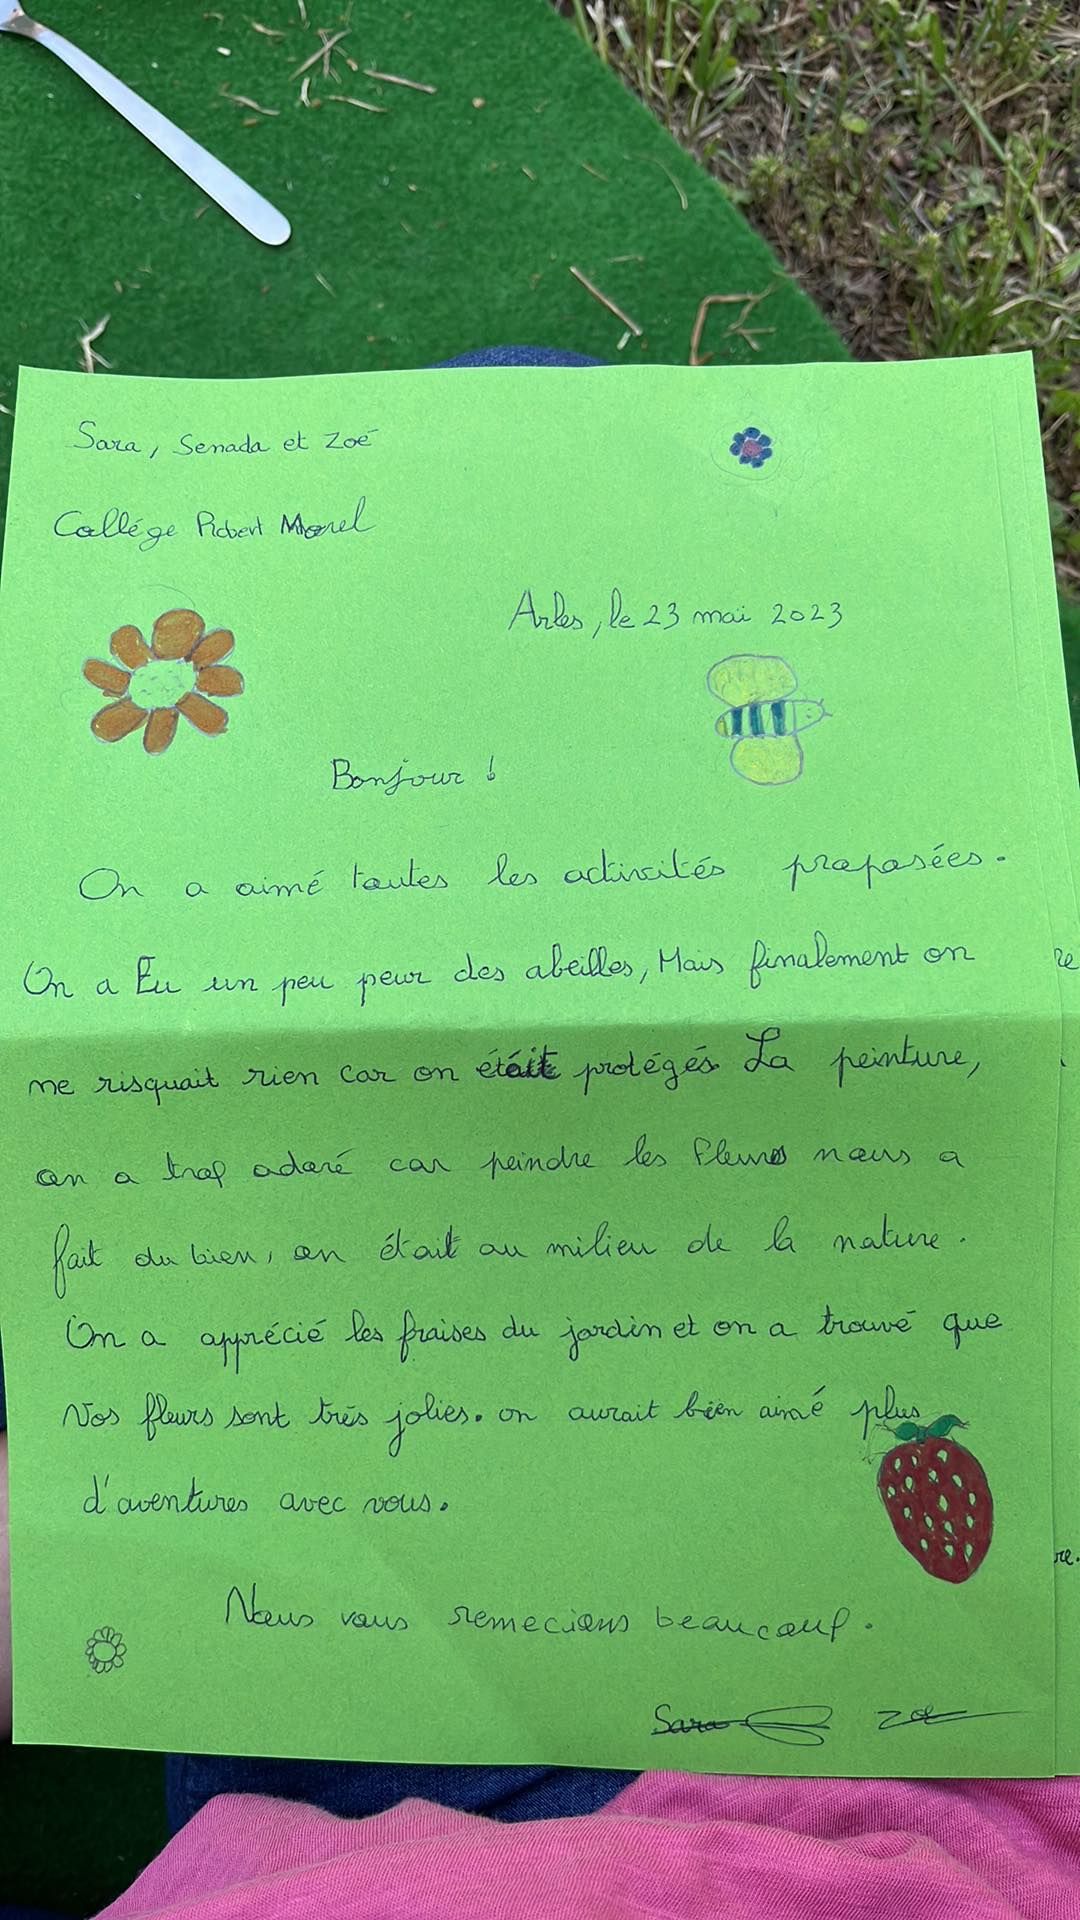 Sara, Senada et Zoé
Collége Robert Morel
Arles, le 23 mai 2023
Bonjour !
On a aimé toutes les activités proposées.
On a Eu un peu peur des abeilles, Mais finalement on
ne risquait rien car on était protégés. La peinture,
on a trop adoré car peindre les fleurs nous a
fait du bien, on était au milieu de la nature.
On a apprécié les fraises du jardin et on a trouvé que
Vos fleurs sont très jolies. on aurait bien aimé plus
d'aventures avec vous.
Nous vous remecions beaucoup.
Sara Zoé
re
re.